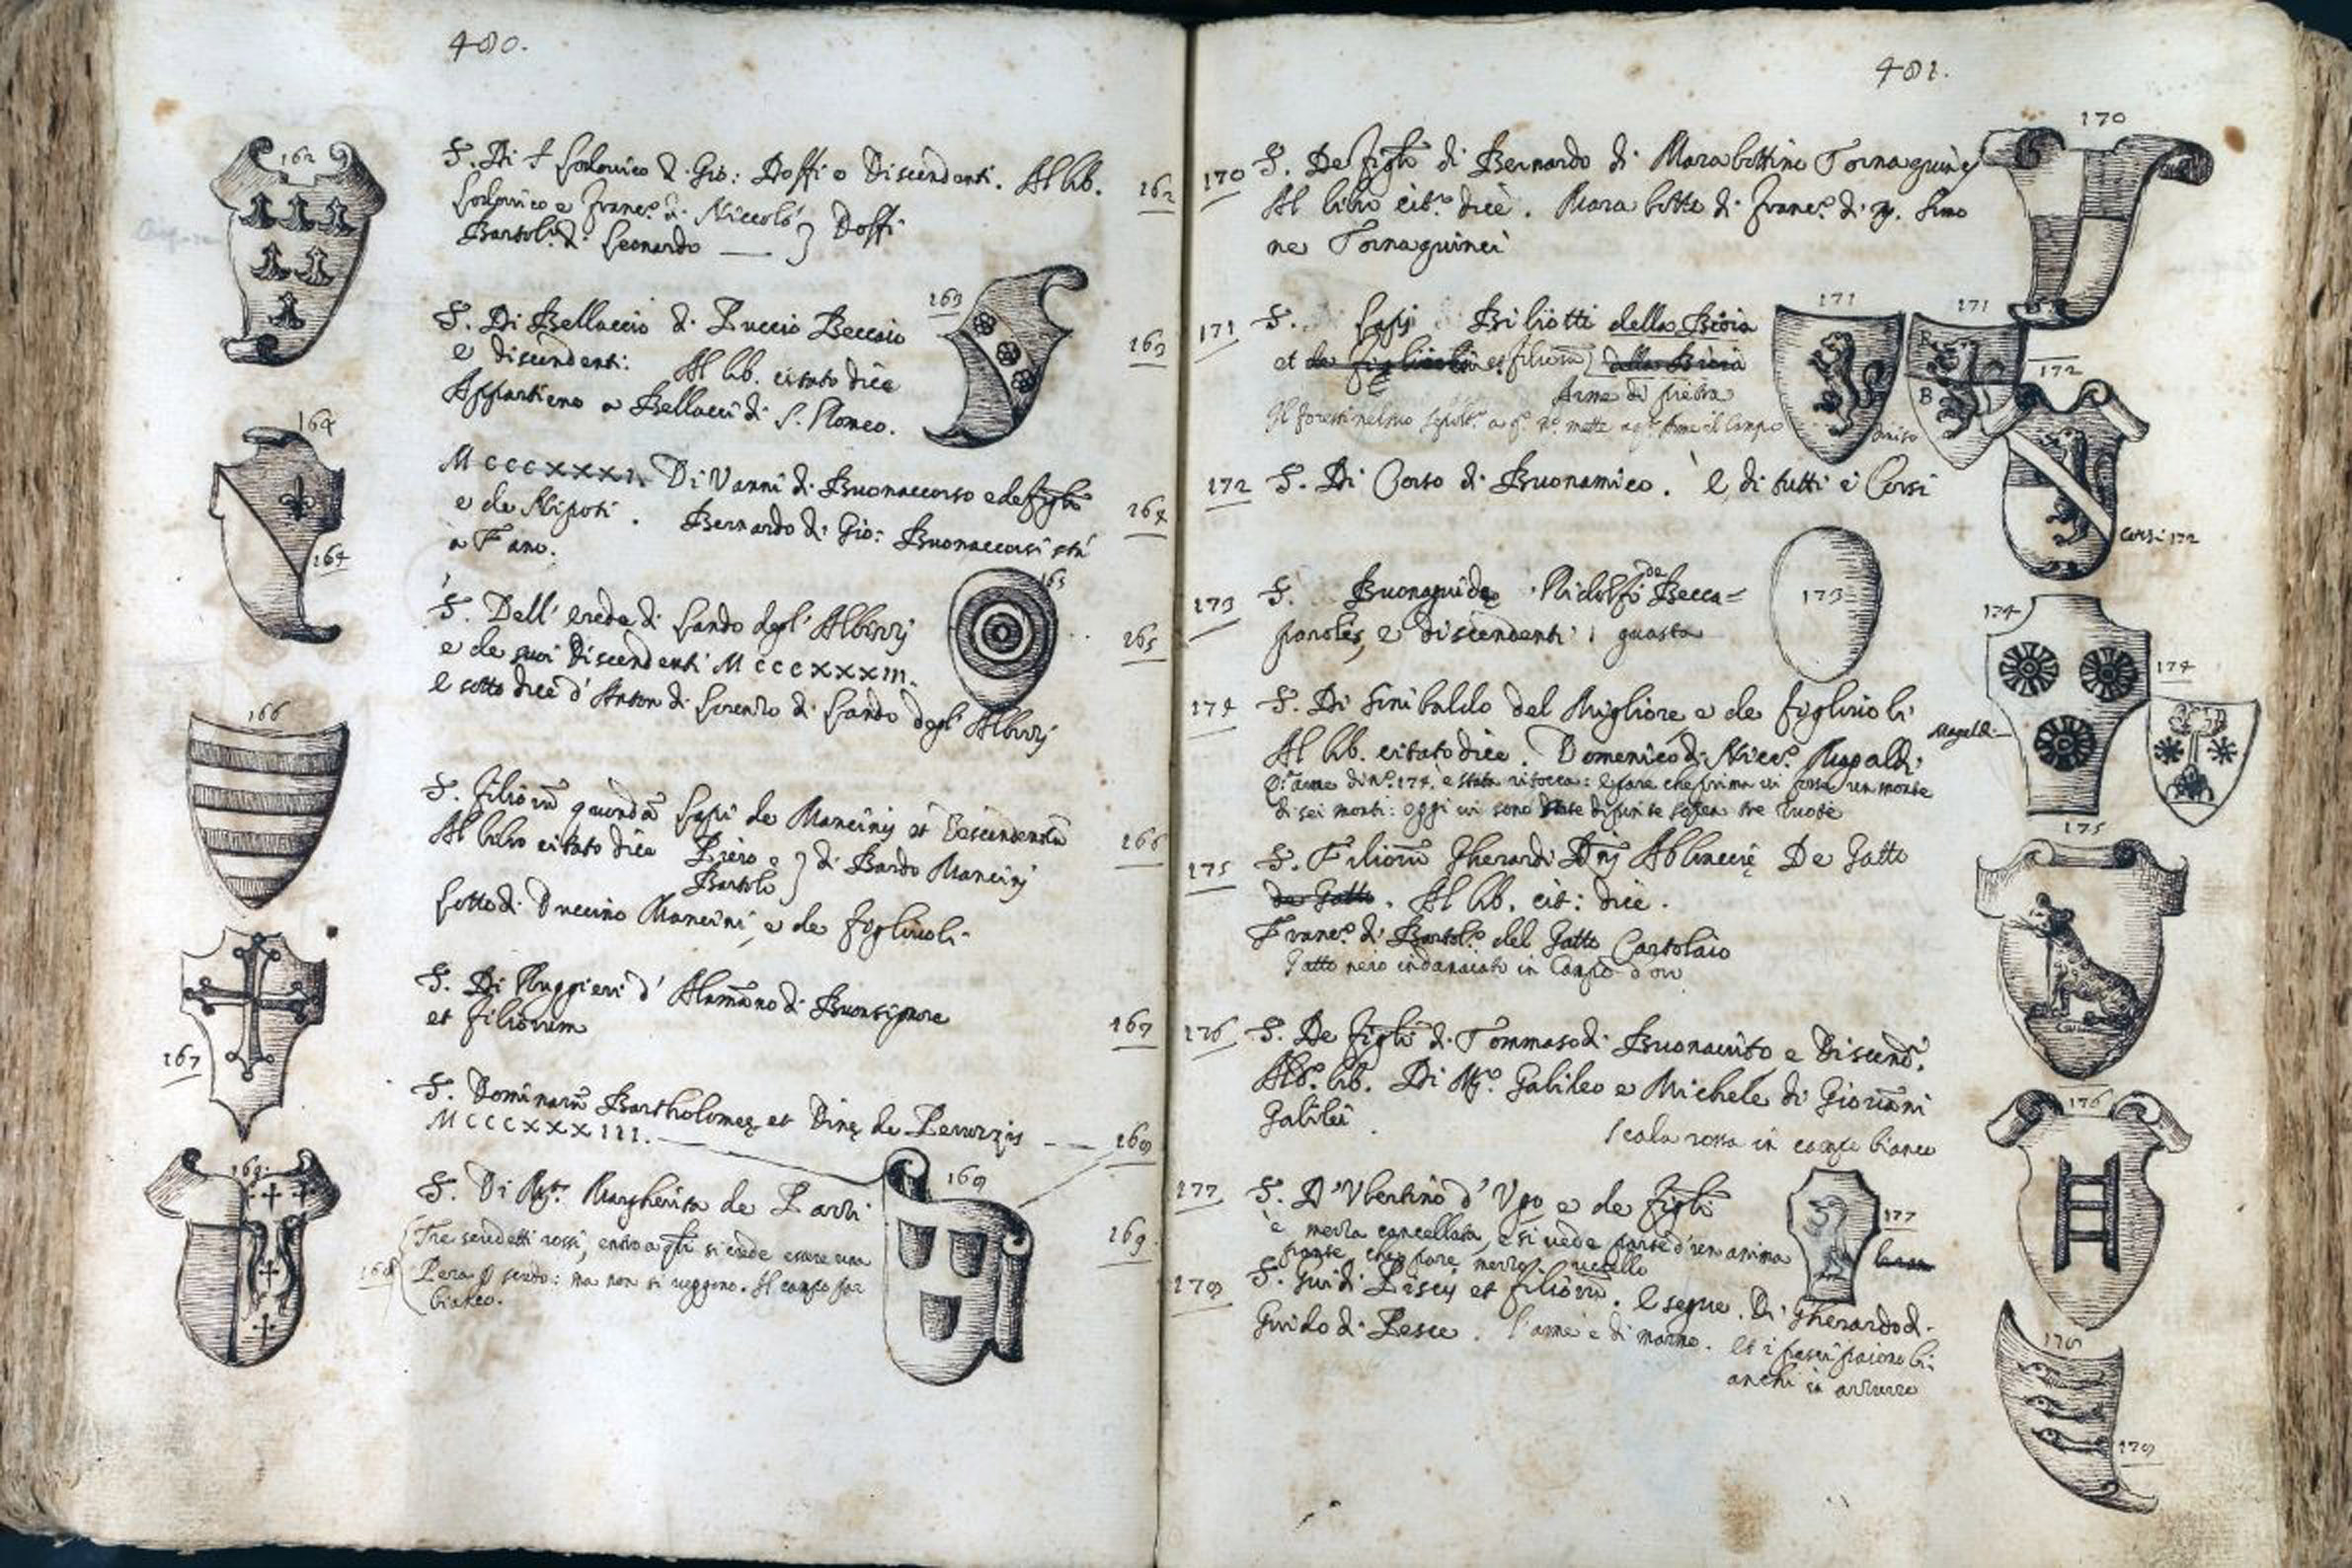 480.
162
S. Di S. Lodovico di Gio: Doffi e Discendenti. Al lib.
162
Lodovico e Franc.º di Niccolò } Doffi
Bartol.º di Leonardo
163
S. Di Bellaccio di Puccio Beccaio
163
e discendenti: Al lib. citato dice
Appartiene a Bellacci di S. Romeo.
164
164
MCCCXXXI. Di Vanni di Buonaccorso e de figli
164
e de Nipoti. Bernardo di Gio: Buonaccorsi sta
a Fano.
165
S. Dell' erede di Lando degl' Albizzi
165
e de suoi Discendenti MCCCXXXIII.
E sotto dice d' Anton di Lorenzo di Lando degl' Albizzi
166
S. Filiorũ quondã Lapi de Mancinis et Descendentiũ
166
Al libro citato dice Piero e } di Bardo Mancini
Bartolo
Sotto di Duccino Mancini, e de figliuoli
167
S. Di Ruggieri d' Alamãno di Buonsignore
167
et filiorum
S. Dominarũ Bartholomeę et Dinę de Peruzzis
168
MCCCXXXIII.
168
169
S. Di Mª. Margherita de Pazzi
169.
Tre scudetti rossi, entro a qli si crede essere una
168
Pera p scudo: ma non si veggono. Il campo par
bianco.
481.
170
170 S. De figli di Bernardo di Marabottino Tornaquinci
Al libro cit.º dice. Marabotto di Franc.º di M. Simo
ne Tornaquinci
171
171
171 S. Lapi Biliotti della Bioia
et filiorũ
Arme di pietra
172
172 S. Di Corso di Buonamico. E di tutti i Corsi
Corsi 172
173
173 S. Buonaguide Ridolfi de Becca=
e discendenti: guasta
174
174
174 S. Di Sinibaldo del Migliore e de figliuoli
Al lib. citato dice. Domenico di Nicc.º Magaldi
Magaldi
D.ª arme di Nº. 174. è stata ritocca: e pare che prima vi fosse un monte
di sei monti: oggi vi sono state dipinte sopra tre ruote
175
175 S. Filiorũ Gherardi De Gatto
de Gatto. Al lib. cit: dice.
Franc.º di Bartol.º del Gatto Cartolaio
Gatto nero indanaiato in Campo d'oro
176
176 S. De figli di Tommaso di Buonaiuto e Discend.
Al d.º lib. Di M.º Galileo e Michele di Giovãni
Galilei.
Scala rossa in campo bianco
177
177 S. D'Ubertino d'Ugo e de figli
è mezza cancellata, e si vede parte d'un anima
che pare mezzo uccello
178
178
178 S. Guidi Piscis et filiorũ. E segue. Di Gherardo di
Guido di Pesce. l'arme è di marmo. et i pesci paiono bi:
anchi in azzurro